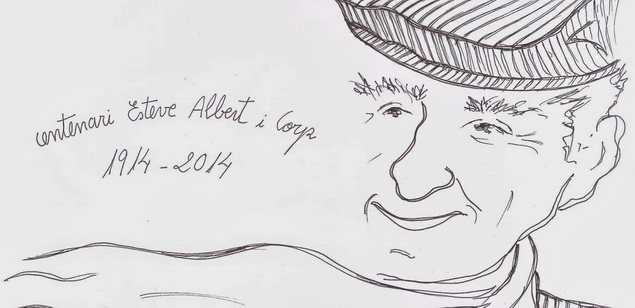 centenari Esteve Albert i Corp
1914-2014